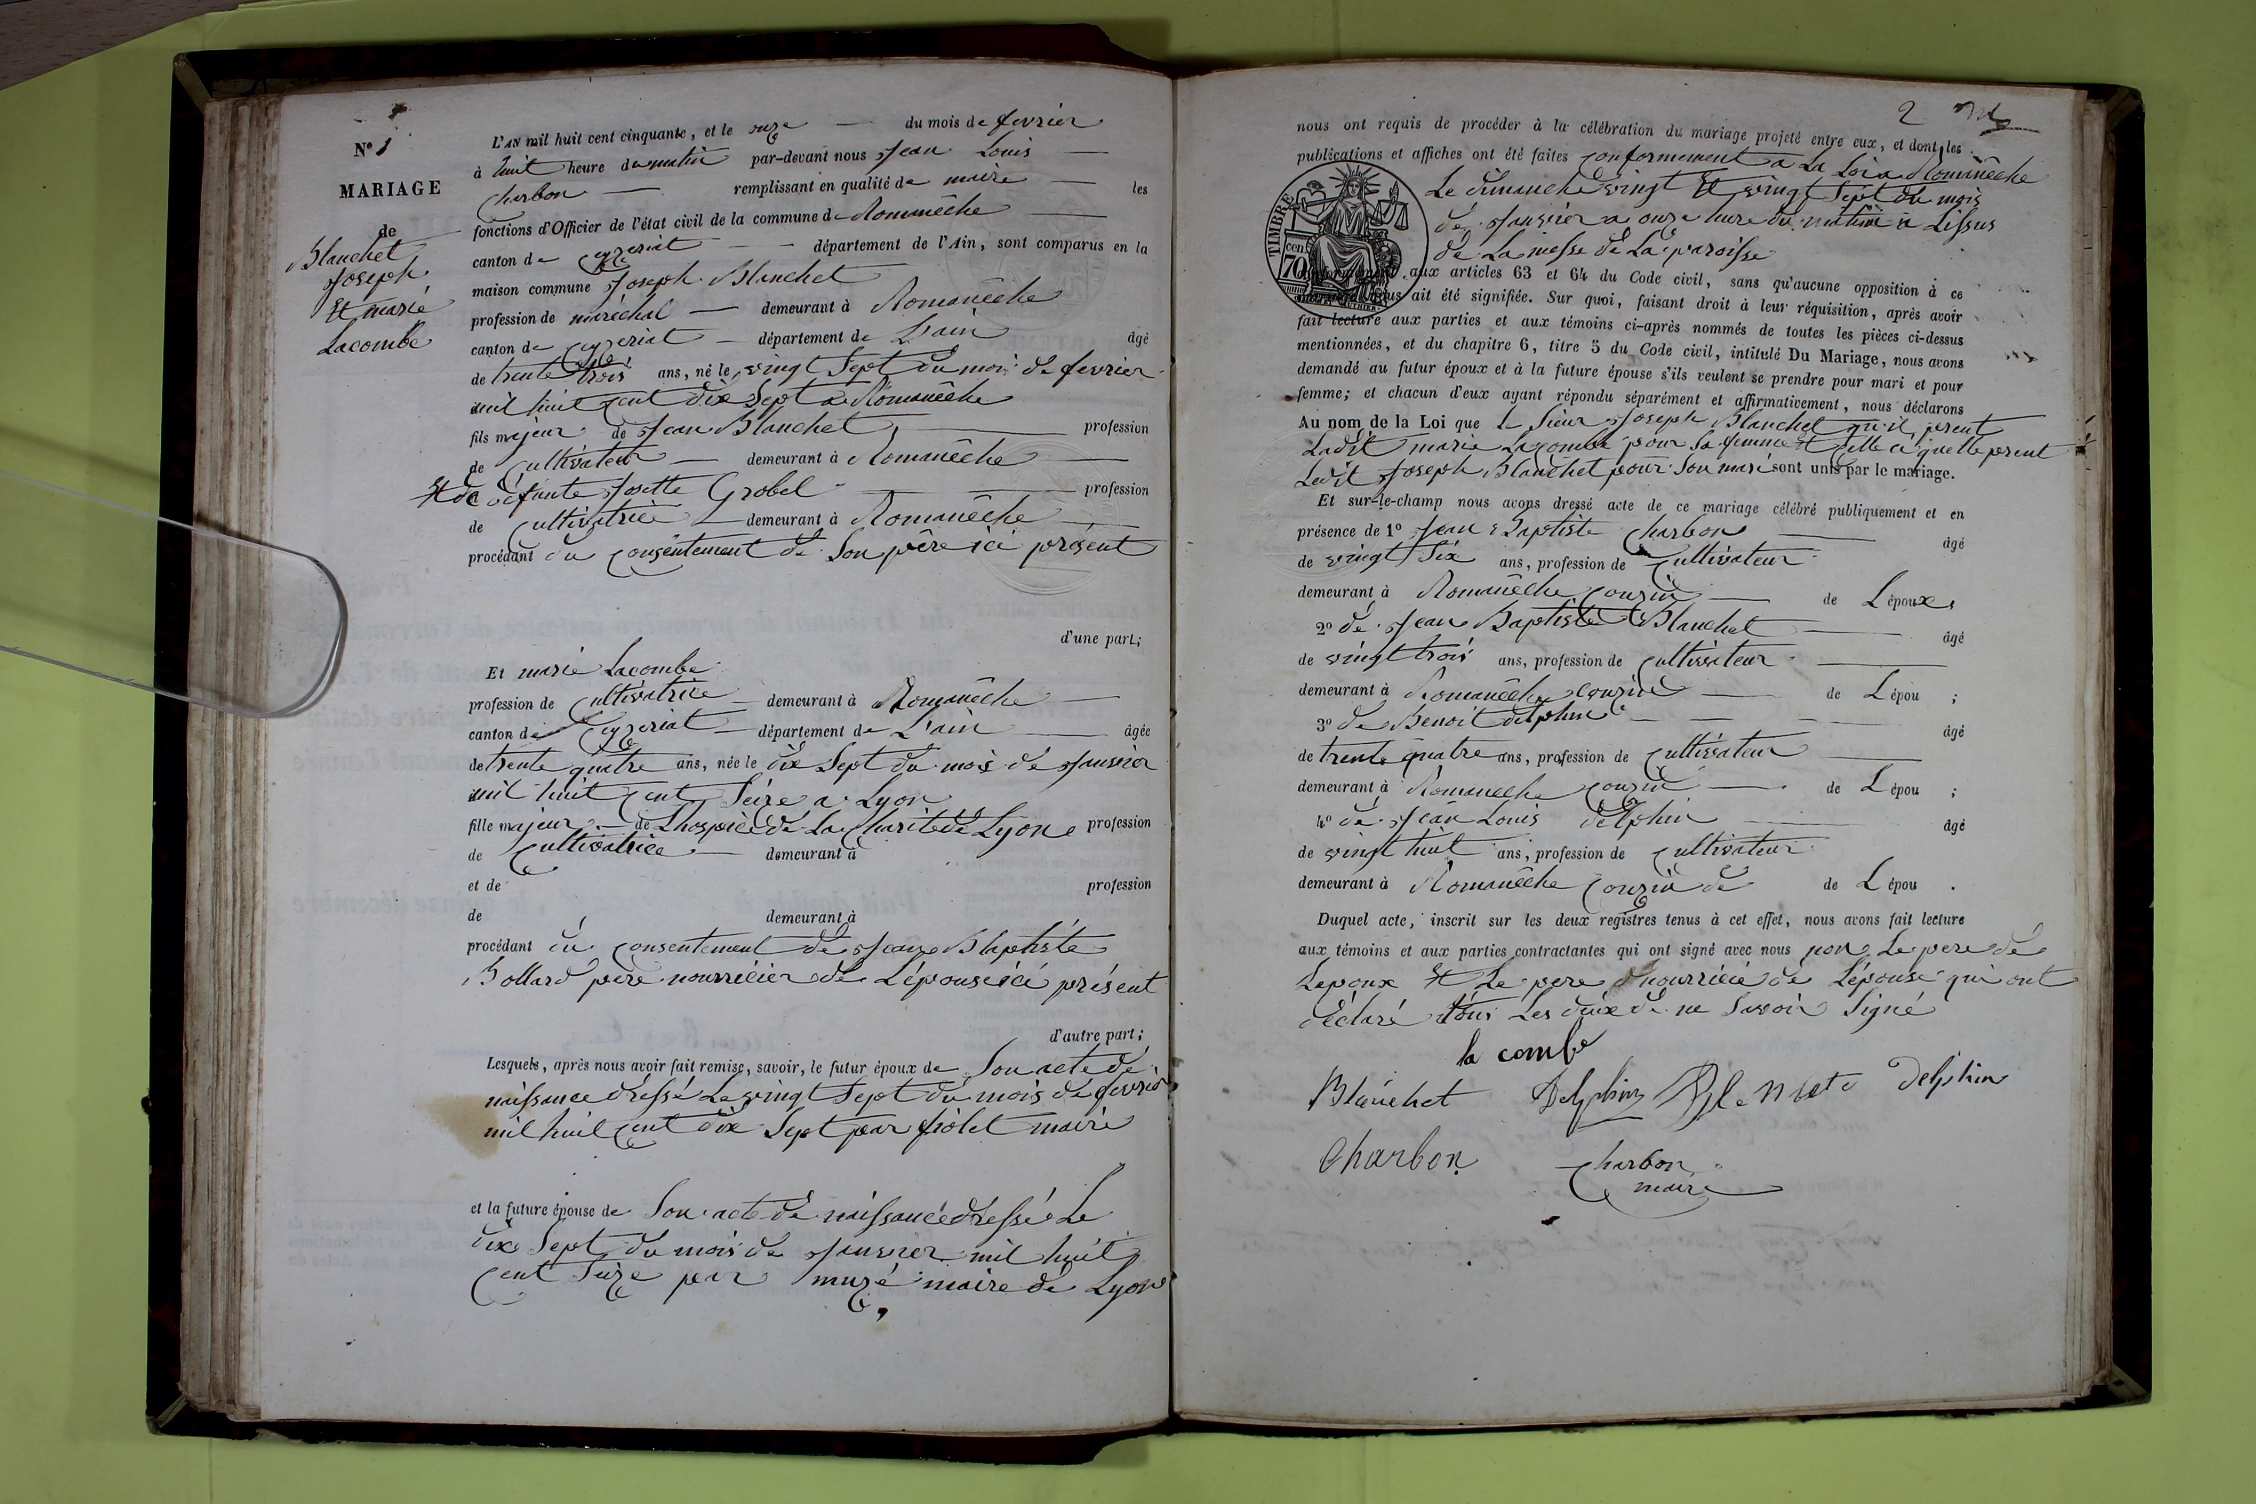 N° 1
MARIAGE
de
Blanchet
Joseph
Et marie
Lacombe
L'AN mil huit cent cinquante, et le onze du mois de fevrier
à huit heure du matin par-devant nous Jean Louis
Charbon remplissant en qualité de maire les
fonctions d'Officier de l'état civil de la commune de Romanêche
canton de Ceyzeriat département de l'Ain, sont comparus en la
maison commune Joseph Blanchet
profession de maréchal demeurant à Romanêche
canton de Ceyzeriat département de L'ain âgé
de trente trois ans, né le vingt Sept du mois de fevrier
mil huit Cent dix Sept a Romanêche
fils majeur de Jean Blanchet profession
de Cultivateur demeurant à Romanêche
Et de défunte Josette Grobel profession
de Cultivatrice demeurant à Romanêche
procédant du Consentement de Son père ici présent
d'une part;
Et marie Lacombe
profession de Cultivatrice demeurant à Romanêche
canton de Ceyzeriat département de L'ain âgée
de trente quatre ans, née le dix Sept du mois de Janvier
mil huit Cent Seize a Lyon
fille majeur de Lhospice de La Charité de Lyon profession
de Cultivatrice demeurant à
et de profession
de demeurant à
procédant du Consentement de Jean Baptiste
Bollard père nourricier de L'épouse ici présent
d'autre part;
Lesquels, après nous avoir fait remise, savoir, le futur époux de Son acte de
naissance dressé Le vingt Sept du mois de fevrier
mil huit Cent dix Sept par fiolet maire
et la future épouse de Son acte de naissance dressé Le
dix Sept du mois de Janvier mil huit
Cent Seize par muzé maire de Lyon
2
nous ont requis de procéder à la célébration du mariage projeté entre eux, et dont les
publications et affiches ont été faites Conformement a La Loi a Romanêche
Le dimanche vingt Et vingt Sept du mois
de Janvier a onze heure du matin a Lissus
de La messe de La paroisse
TIMBRE
cen
70
aux articles 63 et 64 du Code civil, sans qu'aucune opposition à ce
ait été signifiée. Sur quoi, faisant droit à leur réquisition, après avoir
fait lecture aux parties et aux témoins ci-après nommés de toutes les pièces ci-dessus
mentionnées, et du chapitre 6, titre 5 du Code civil, intitulé Du Mariage, nous avons
demandé au futur époux et à la future épouse s'ils veulent se prendre pour mari et pour
femme; et chacun d'eux ayant répondu séparément et affirmativement, nous déclarons
Au nom de la Loi que le Sieur Joseph Blanchet qu'il prent
Ladit marie Lacombe pour Sa femme Et Celle ci quelle prent
Ledit Joseph Blanchet pour Son mari sont unis par le mariage.
Et sur-le-champ nous avons dressé acte de ce mariage célébré publiquement et en
présence de 1° Jean Baptiste Charbon âgé
de vingt Six ans, profession de Cultivateur
demeurant à Romanêche Couzin de L époux,
2° de Jean Baptiste Blanchet âgé
de vingt trois ans, profession de Cultivateur
demeurant à Romanêche Couzin de L épou ;
3° de Benoit delphin âgé
de trente quatre ans, profession de Cultivateur
demeurant à Romanêche Couzin de L épou ;
4° de Jean Louis delphin âgé
de vingt huit ans, profession de Cultivateur
demeurant à Romanêche Couzin de de L épou .
Duquel acte, inscrit sur les deux registres tenus à cet effet, nous avons fait lecture
aux témoins et aux parties contractantes qui ont signé avec nous non Le pere de
Lepoux Et Le pere nourricié de L'épouse qui ont
déclaré tous Les deux de ne Savoir Signé
la combe
Blanchet Delphin Delphin
Charbon Charbon
maire